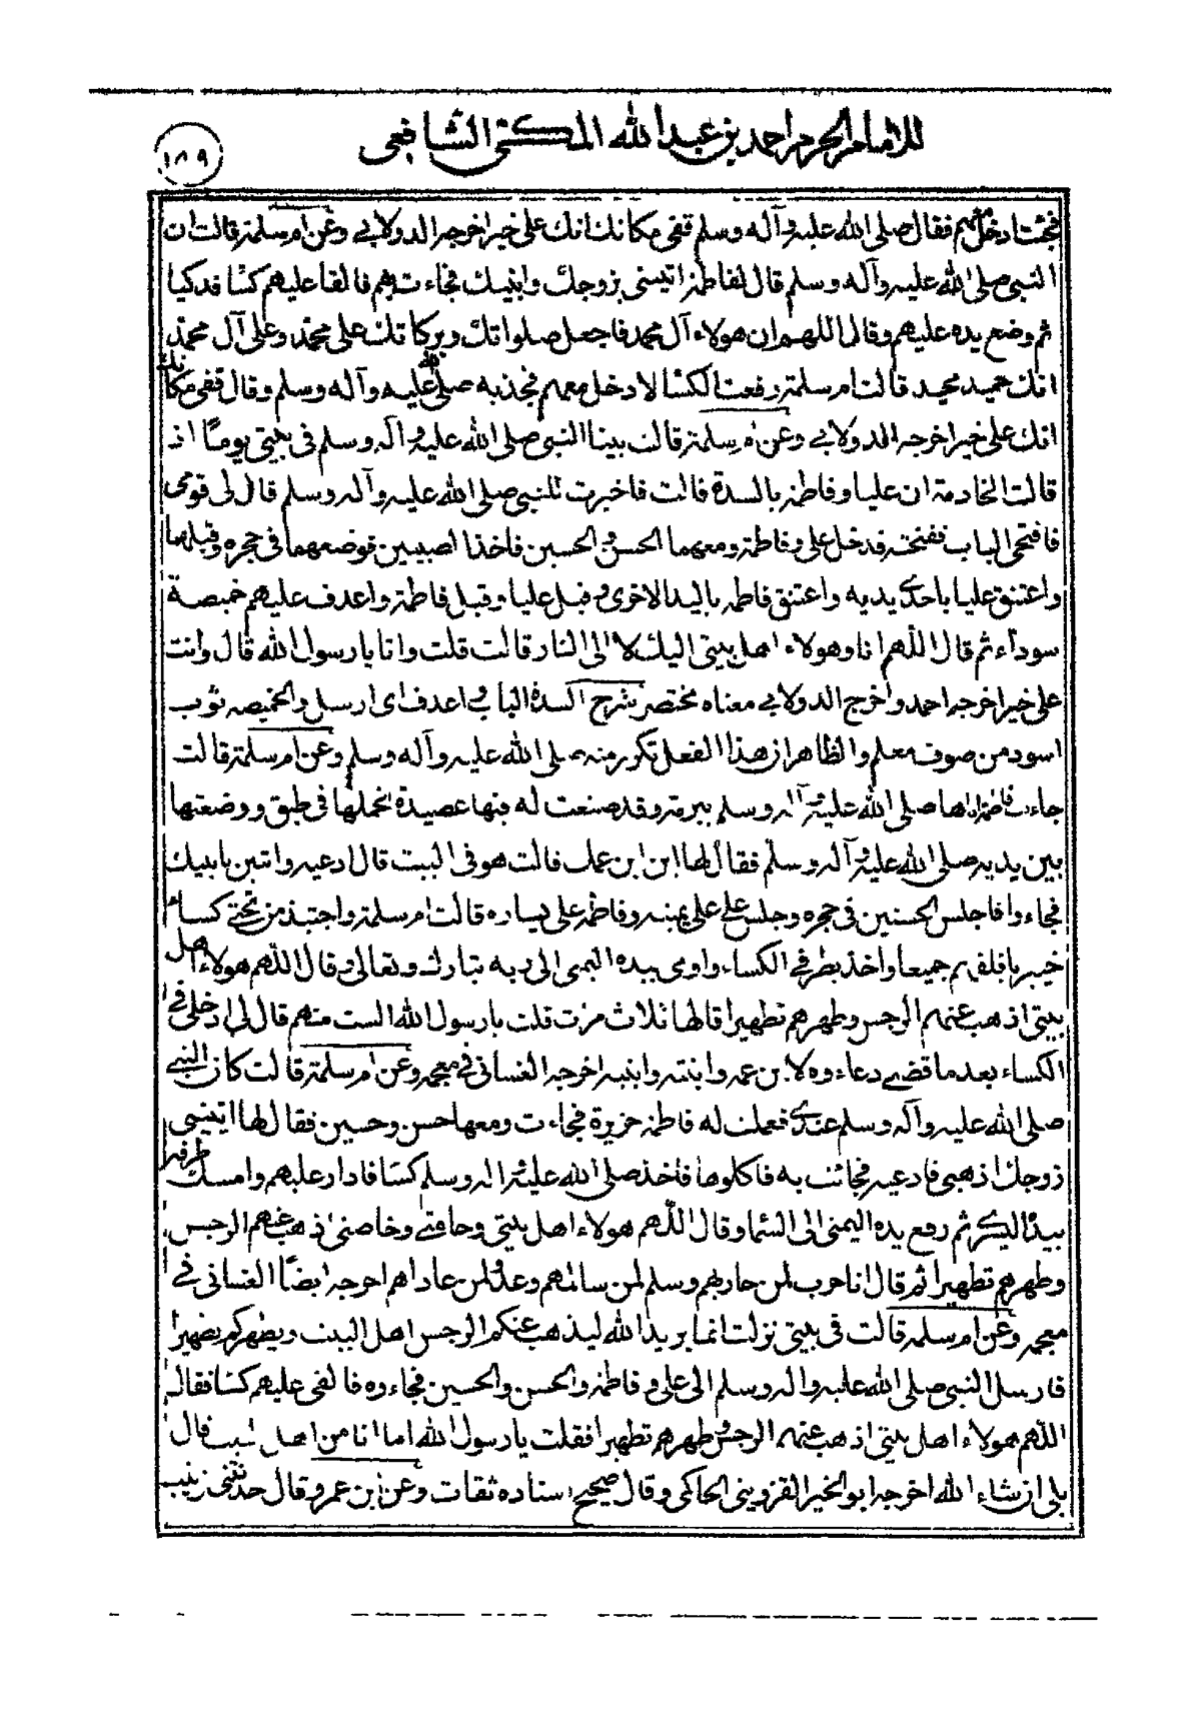 للامام الحرم احمد بن عبد الله المكي الشافعي
١٨٩
فجئت ادخل معهم فقال صلى الله عليه وآله وسلم قفى مكانك انك على خير اخرجه الدولابي وعن ام سلمة قالت ان
النبى صلى الله عليه وآله وسلم قال لفاطمة ائتينى بزوجك وابنيك فجاءت بهم فالقا عليهم كسا فدكيا
ثم وضع يده عليهم وقال اللهم ان هولاء آل محمد فاجعل صلواتك وبركاتك على محمد وعلى آل محمد
انك حميد مجيد قالت ام سلمة رفعت الكسا لادخل معهم فجذبه صلى الله عليه وآله وسلم وقال قفى مكانك
انك على خير اخرجه الدولابي وعن ام سلمة قالت بينا النبى صلى الله عليه وآله وسلم فى بيتى يوماً اذ
قالت الخادمة ان عليا وفاطمة بالسدة قالت فاخبرت للنبى صلى الله عليه وآله وسلم قال لى قومى
فافتحى الباب ففتحته فدخل على وفاطمة ومعهما الحسن والحسين فاخذا لصبيين فوضعهما فى حجره وقبلهما
واعتنق عليا باحدى يديه واعتنق فاطمه باليد الاخرى وقبل عليا وقبل فاطمة واعدف عليهم خميصة
سوداء ثم قال اللهم انا وهولاء اهل بيتى اليك لا الى النار قالت قلت وانا يا رسول الله قال وانت
على خير اخرجه احمد واخرج الدولابي معناه مختصر شرح السدة الباب واعدف اى ارسل والخميصه ثوب
اسود من صوف معلم والظاهر ان هذا الفعل تكرر منه صلى الله عليه وآله وسلم وعن ام سلمة قالت
جاءت فاطمة اباها صلى الله عليه وآله وسلم ببرمة وقد صنعت له فيها عصيدة تحملها فى طبق ووضعتها
بين يديه صلى الله عليه وآله وسلم فقال لها اين ابن عمك قالت هو فى البيت قال ادعيه وائتين بابنيك
فجاءوا فاجلس الحسنين فى حجره وجلس على على يمينه وفاطمة على يساره قالت ام سلمة واجتبذ من تحتى كساء
خيبريا فلفهم جميعا واخذ بطرفى الكساء واومى بيده اليمى الى ربه تبارك وتعالى وقال اللهم هولاء اهل
بيتى اذهب عنهم الرجس وطهرهم تطهيرا قالها ثلاث مرت قلت يا رسول الله الست منهم قال لى ادخلى فى
الكساء بعد ما قضى دعاءوه لابن عمه وابنته وابنيه اخرجه الغسانى فى معجمه وعن ام سلمة قالت كان النبى
صلى الله عليه وآله وسلم عندى فعملت له فاطمة خزيرة فجاءت ومعها حسن وحسين فقال لها ائتينى
زوجك اذهبى فادعيه فجائت به فاكلوها فاخذ صلى الله عليه وآله وسلم كسا فادار عليهم وامسك طرفه
بيده اليسرى ثم رفع يده اليمنى الى السما وقال اللهم هولاء اهل بيتى وحامتى وخاصتى اذهب عنهم الرجس
وطهرهم تطهيرا ثم قال انا حرب لمن حاربهم وسلم لمن سالمهم وعدو لمن عاداهم اخرجه ايضاً الغسانى فى
معجمه وعن ام سلمه قالت فى بيتى نزلت انما يريد الله ليذهب عنكم الرجس اهل البيت ويطهركم تطهيرا
فارسل النبى صلى الله عليه وآله وسلم الى على وفاطمة والحسن والحسين فجاءوه فالقى عليهم كسا فقال
اللهم هولاء اهل بيتى اذهب عنهم الرجس وطهرهم تطهيرا فقلت يا رسول الله اما انا من اهل البيت قال
بلى ان شاء الله اخرجه ابو الخير القزوينى الحاكمى وقال صحيح اسناده ثقات وعن ابن عمر وقال حدثتنى زينب